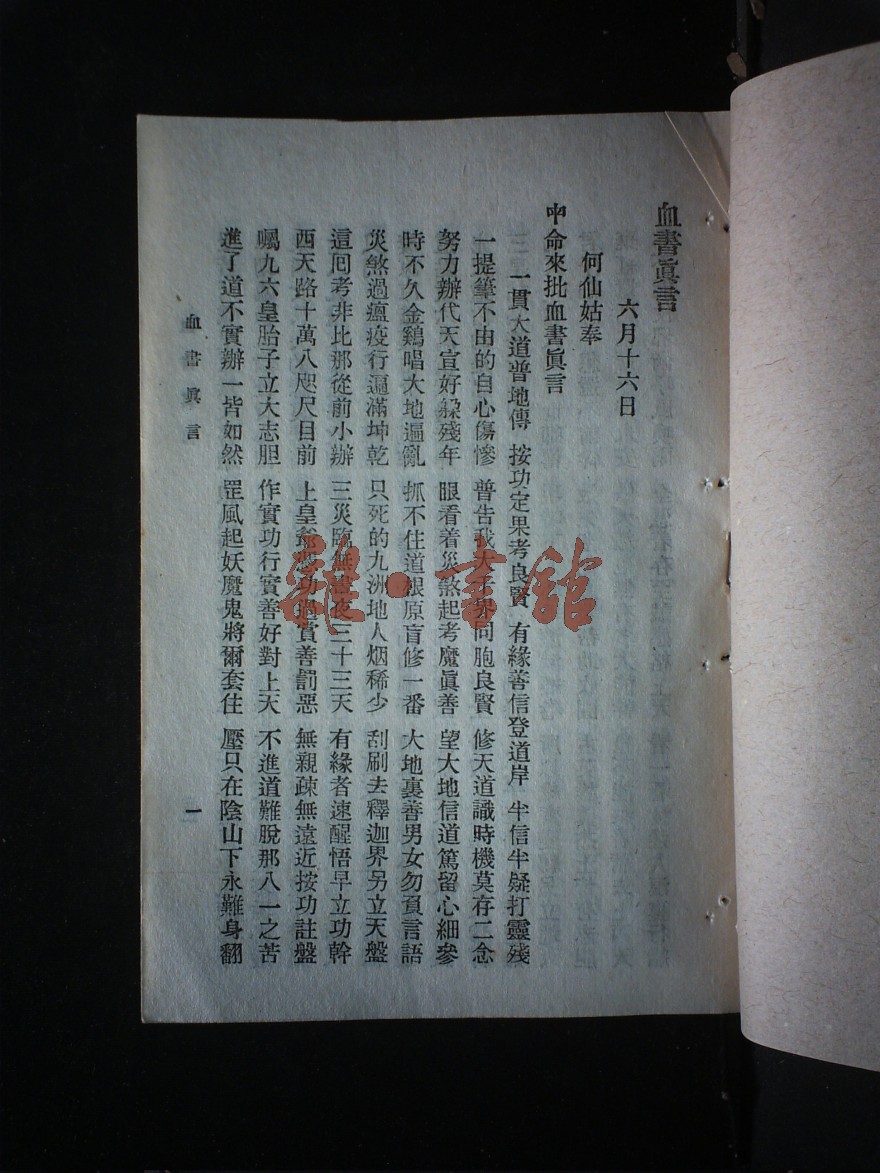 血書眞言
六月十六日
何仙姑奉
中命來批血書眞言
一貫大道普地傳 按功定果考良賢 有緣善信登道岸 半信半疑打靈殘
一提筆不由的自心傷慘 普告我大千界同胞良賢 修天道識時機莫存二念
努力辦代天宣好躱殘年 眼看着災煞起考魔眞善 望大地信道篤留心細參
時不久金鷄唱大地遍亂 抓不住道根原盲修一番 大地裏善男女勿負言語
災煞過瘟疫行遍滿坤乾 只死的九洲地人烟稀少 刮刷去釋迦界另立天盤
這囘考非比那從前小辦 三災臨無晝夜三十三天 有緣者速醒悟早立功幹
西天路十萬八咫尺目前 上皇爺 功過賞善罰惡 無親疎無遠近按功註盤
囑九六皇胎子立大志胆 作實功行實善好對上天 不進道難脫那八一之苦
進了道不實辦一皆如然 罡風起妖魔鬼將爾套住 壓只在陰山下永難身翻
血書眞言
一
雜·書館